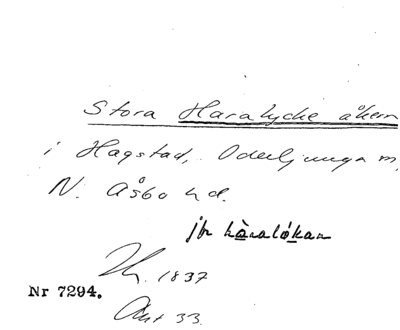 Stora Haralycke åkern
i Hagstad, Oderljunga m,
N. Åsbo hd.
jfr hàralókan
1837
Nr 7294.
Akt 33.